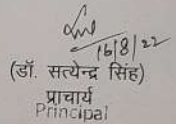 16/8/22
(डॉ. सत्येन्द्र सिंह)
प्राचार्य
Principal